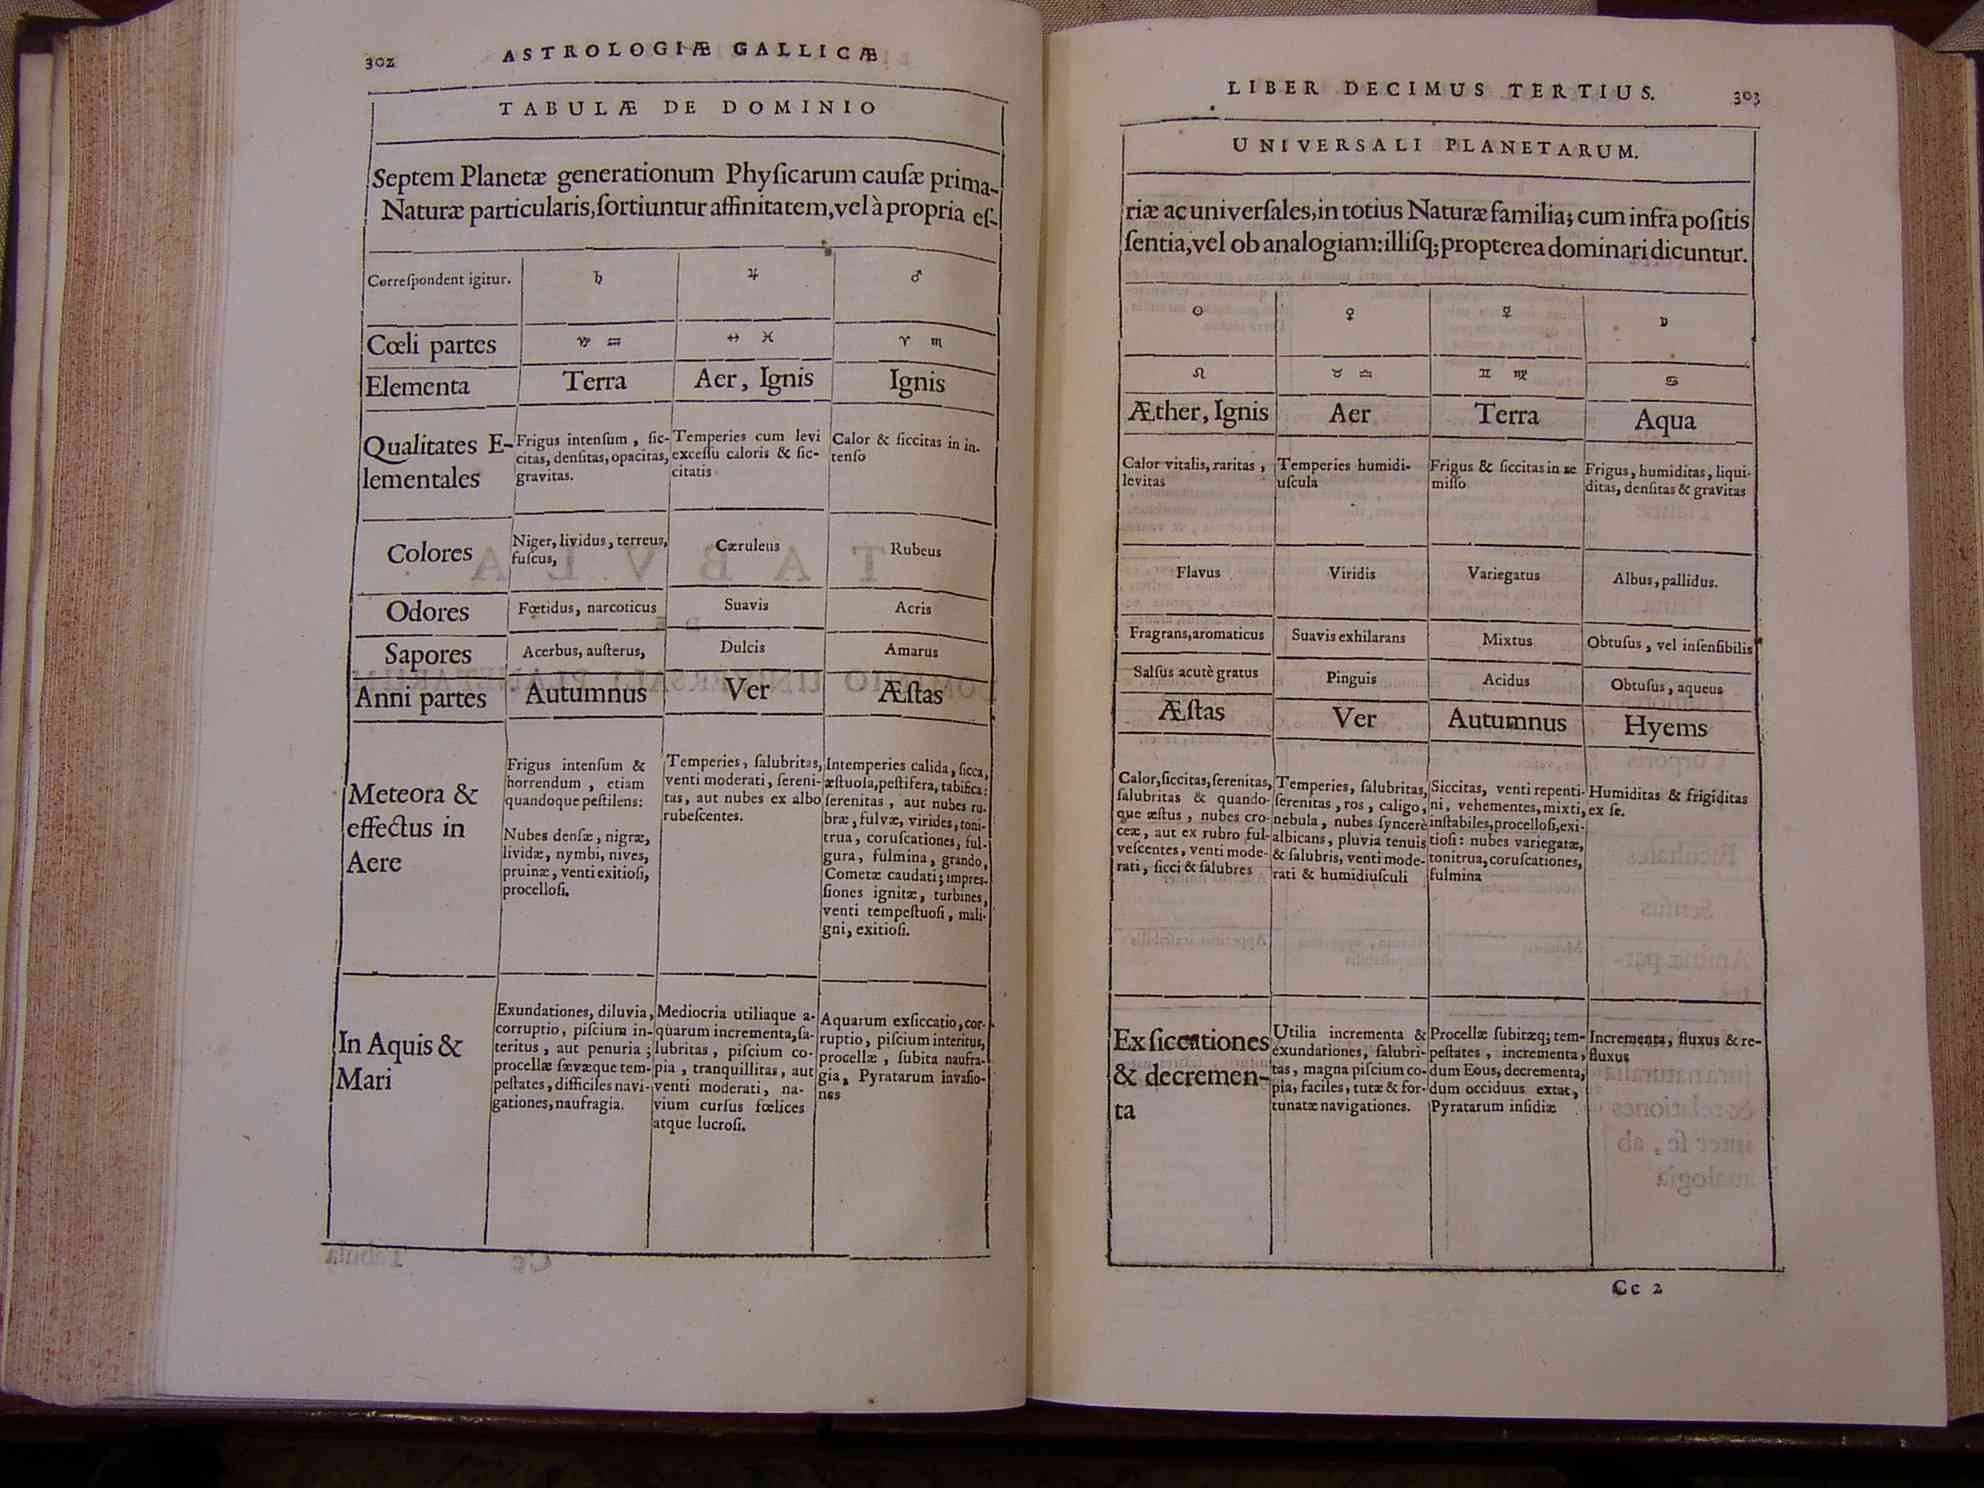 302 ASTROLOGIÆ GALLICÆ
TABULÆ DE DOMINIO
Septem Planetæ generationum Phyſicarum cauſæ prima-
Naturæ particularis, ſortiuntur affinitatem, vel à propria eſ-
Correſpondent igitur. ♄ ♃ ♂
Cœli partes ♑ ♒ ♐ ♓ ♈ ♏
Elementa Terra Aer, Ignis Ignis
Qualitates E-
lementales
Frigus intenſum, ſic-
citas, denſitas, opacitas,
gravitas.
Temperies cum levi
exceſſu caloris & ſic-
citatis
Calor & ſiccitas in in-
tenſo
Colores
Niger, lividus, terreus,
fuſcus,
Cæruleus
Rubeus
Odores Fœtidus, narcoticus Suavis Acris
Sapores Acerbus, auſterus, Dulcis Amarus
Anni partes Autumnus Ver Æſtas
Meteora &
effectus in
Aere
Frigus intenſum &
horrendum, etiam
quandoque peſtilens:
Nubes denſæ, nigræ,
lividæ, nymbi, nives,
pruinæ, venti exitioſi,
procelloſi.
Temperies, ſalubritas,
venti moderati, ſereni-
tas, aut nubes ex albo
rubeſcentes.
Intemperies calida, ſicca,
æſtuoſa, peſtifera, tabifica:
ſerenitas, aut nubes ru-
bræ, fulvæ, virides, toni-
trua, coruſcationes, ful-
gura, fulmina, grando,
Cometæ caudati; impreſ-
ſiones ignitæ, turbines,
venti tempeſtuoſi, mali-
gni, exitioſi.
In Aquis &
Mari
Exundationes, diluvia,
corruptio, piſcium in-
teritus, aut penuria;
procellæ ſævæque tem-
peſtates, difficiles navi-
gationes, naufragia.
Mediocria utiliaque a-
quarum incrementa, ſa-
lubritas, piſcium co-
pia, tranquillitas, aut
venti moderati, na-
vium curſus fœlices
atque lucroſi.
Aquarum exſiccatio, cor-
ruptio, piſcium interitus,
procellæ, ſubita naufra-
gia, Pyratarum invaſio-
nes
LIBER DECIMUS TERTIUS. 303
UNIVERSALI PLANETARUM.
riæ ac univerſales, in totius Naturæ familia; cum infra poſitis
ſentia, vel ob analogiam: illiſq; propterea dominari dicuntur.
☉ ♀ ☿ ☽
♌ ♉ ♎ ♊ ♍ ♋
Æther, Ignis Aer Terra Aqua
Calor vitalis, raritas,
levitas
Temperies humidi-
uſcula
Frigus & ſiccitas in re
miſſo
Frigus, humiditas, liqui-
ditas, denſitas & gravitas
Flavus Viridis Variegatus Albus, pallidus.
Fragrans, aromaticus Suavis exhilarans Mixtus Obtuſus, vel inſenſibilis
Salſus acutè gratus Pinguis Acidus Obtuſus, aqueus
Æſtas Ver Autumnus Hyems
Calor, ſiccitas, ſerenitas,
ſalubritas & quando-
que æſtus, nubes cro-
ceæ, aut ex rubro ful-
veſcentes, venti mode-
rati, ſicci & ſalubres
Temperies, ſalubritas,
ſerenitas, ros, caligo,
nebula, nubes ſyncerè
albicans, pluvia tenuis
& ſalubris, venti mode-
rati & humidiuſculi
Siccitas, venti repenti-
ni, vehementes, mixti,
inſtabiles, procelloſi, exi-
tioſi: nubes variegatæ,
tonitrua, coruſcationes,
fulmina
Humiditas & frigiditas
ex ſe.
Exſiccationes
& decremen-
ta
Utilia incrementa &
exundationes, ſalubri-
tas, magna piſcium co-
pia, faciles, tutæ & for-
tunatæ navigationes.
Procellæ ſubitæq; tem-
peſtates, incrementa,
dum Eous, decrementa,
dum occiduus extat,
Pyratarum inſidiæ
Incrementa, fluxus & re-
fluxus
Cc 2